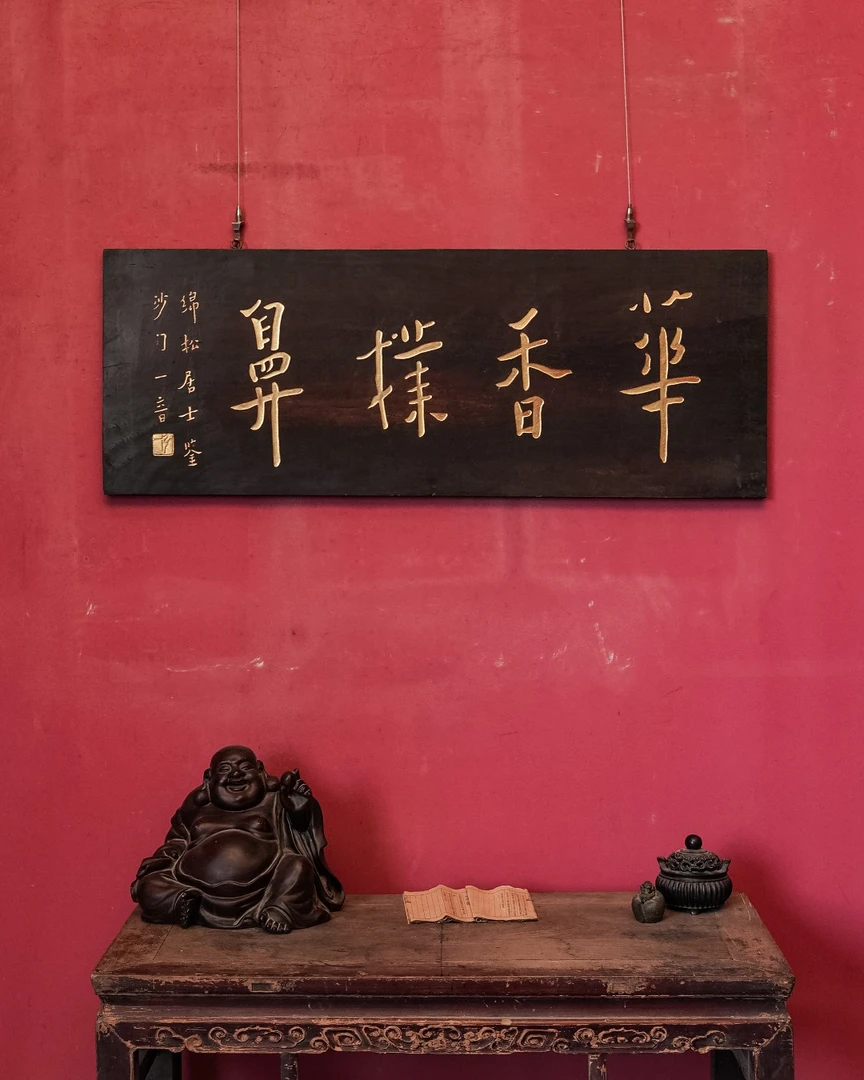 華香撲鼻
绵松居士鉴
沙门一音